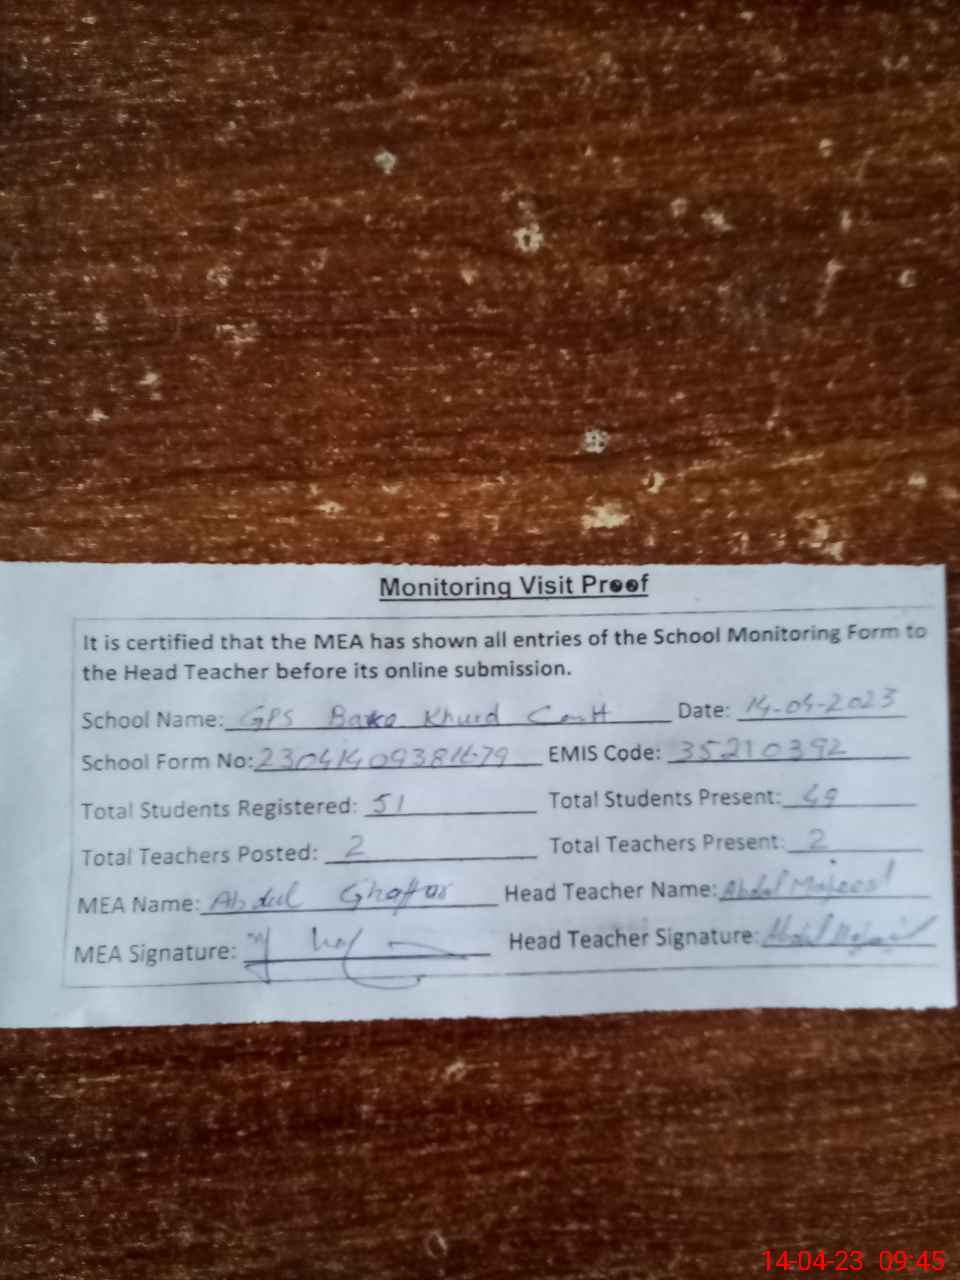 Monitoring Visit Proof
It is certified that the MEA has shown all entries of the School Monitoring Form to
the Head Teacher before its online submission.
School Name: GPS Khurd Cantt Date: 14-04-2023
School Form No: EMIS Code: 35210392
Total Students Registered: 51 Total Students Present: 49
Total Teachers Posted: 2 Total Teachers Present: 2
MEA Name: Abdul Ghaffar Head Teacher Name: Abdul Majeed
MEA Signature: Head Teacher Signature: Abdul Majeed
14-04-23 09:45